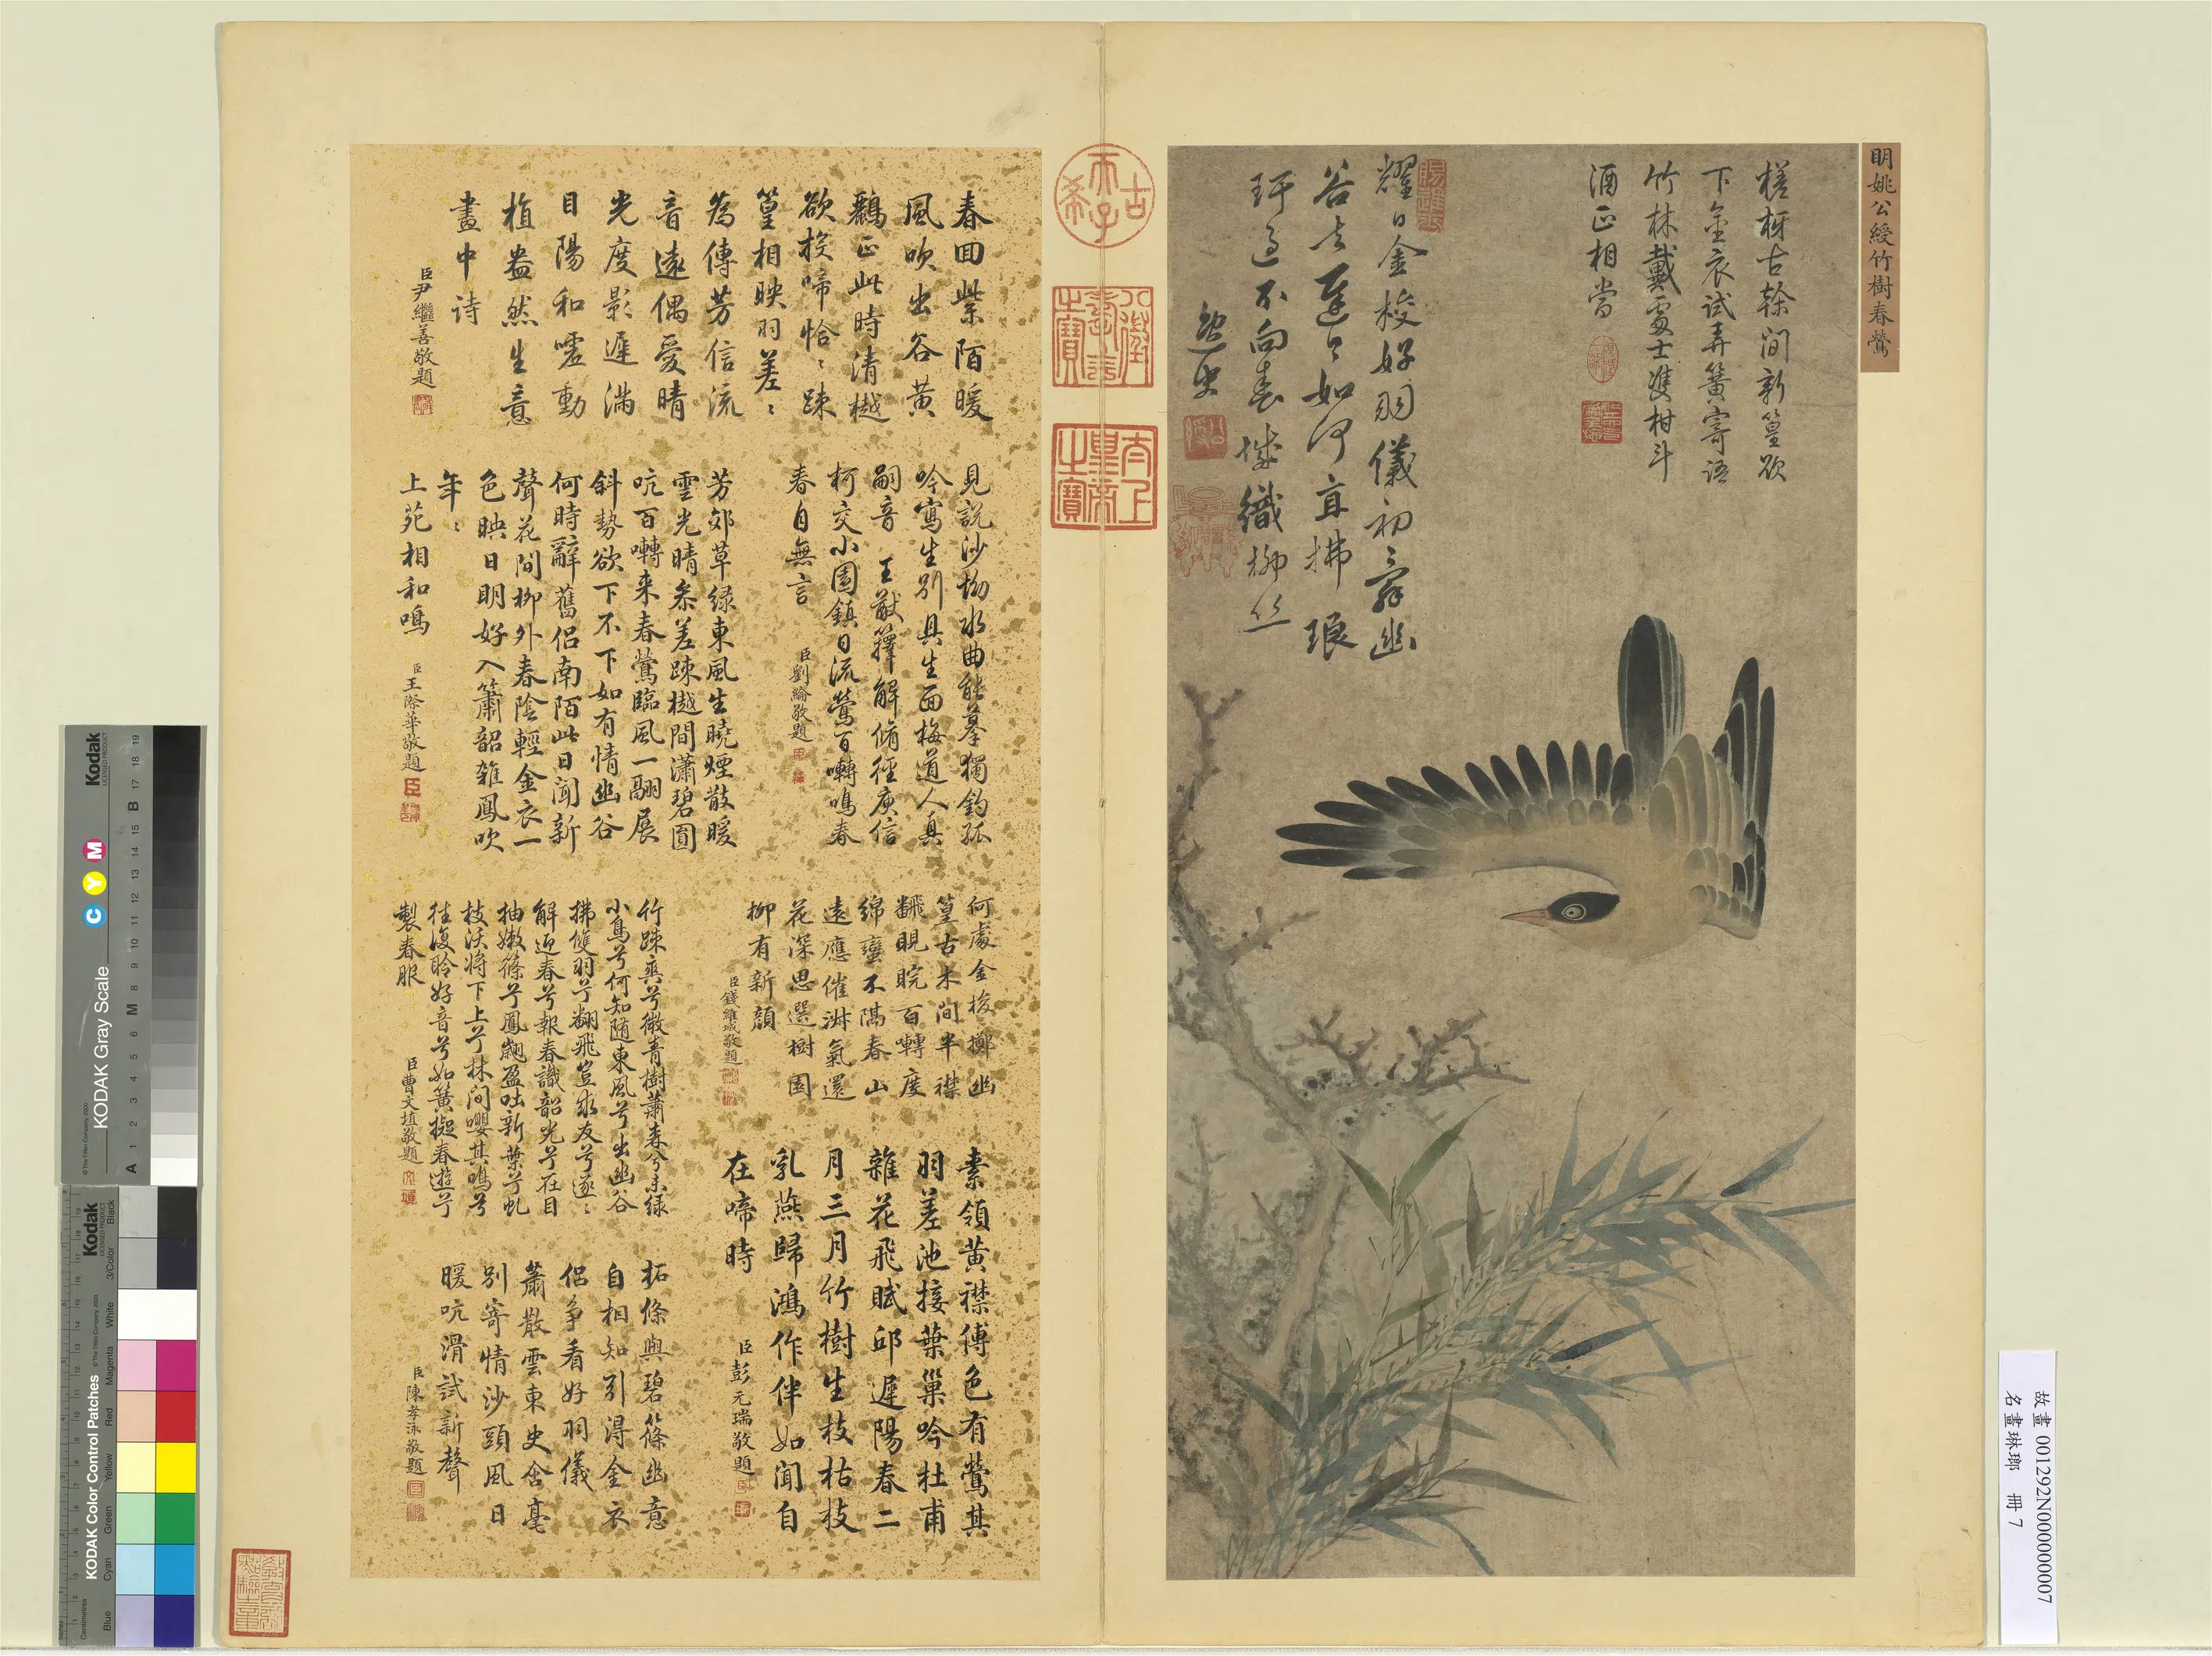 明姚公綬竹樹春鶯
槎枒古榦間新篁欲
下金衣試弄簧寄語
竹林戴處士雙柑斗
酒正相當
耀日金梭好羽儀初辭幽
谷去遲遲如何直拂琅
玕過不向春城織柳絲
逸史
古
希
天子
八徵
耄念
之寶
太上
皇帝
之寶
春回紫陌暖
風吹出谷黃
鸝正此時清樾
欲投啼恰〻疎
篁相映羽差〻
為傳芳信流
音遠偶愛晴
光度影遲滿
目陽和噓動
植盎然生意
畫中詩
臣尹繼善敬題
見說沙坳水曲能摹獨釣孤
吟寫生別具生面梅道人真
嗣音 王猷籜解脩徑庾信
柯交小園鎮日流鶯百囀鳴春
春自無言
臣劉綸敬題
芳郊草綠東風生曉煙散暖
雲光晴參差疎樾間瀟碧圓
吭百囀来春鶯臨風一翮展
斜勢欲下不下如有情幽谷
何時辭舊侶南陌此日聞新
聲花間柳外春陰輕金衣一
色映日明好入簫韶雜鳳吹
年〻
上苑相和鳴
臣王際華敬題
何處金梭擲幽
篁古木間半襟
翻睍睆百囀度
綿蠻不隔春山
遠應催淑氣還
花深思選樹園
柳有新顏
臣錢維城敬題
竹疎爽兮微青樹蕭森兮未綠
小鳥兮何知随東風兮出幽谷
拂隻羽兮翻飛豈求友兮逐〻
解迎春兮報春識韶光兮在目
抽嫩篠兮鳳翽盈吐新葉兮虬
枝沃将下上兮林间嚶其鳴兮
往復聆好音兮如簧擬春遊兮
製春服
臣曹文埴敬題
素領黃襟傅色有鶯其
羽差池接葉巢吟杜甫
雜花飛賦邱遲陽春二
月三月竹樹生枝枯枝
乳燕歸鴻作伴如聞自
在啼時
臣彭元瑞敬題
柘條與碧篠幽意
自相知引得金衣
侶爭看好羽儀
蕭散雲東史含毫
別寄情沙頭風日
暖吭滑試新聲
臣陳孝泳敬題
故畫 001292N000000007
名畫琳瑯 冊 7
Kodak
LICENSED PRODUCT
KODAK Gray Scale
C Y M
© The Tiffen Company, 2000
A 1 2 3 4 5 6 M 8 9 10 11 12 13 14 15 B 17 18 19
Kodak
LICENSED PRODUCT
KODAK Color Control Patches
© The Tiffen Company, 2000
Centimetres
Blue Cyan Green Yellow Red Magenta White 3/Color Black